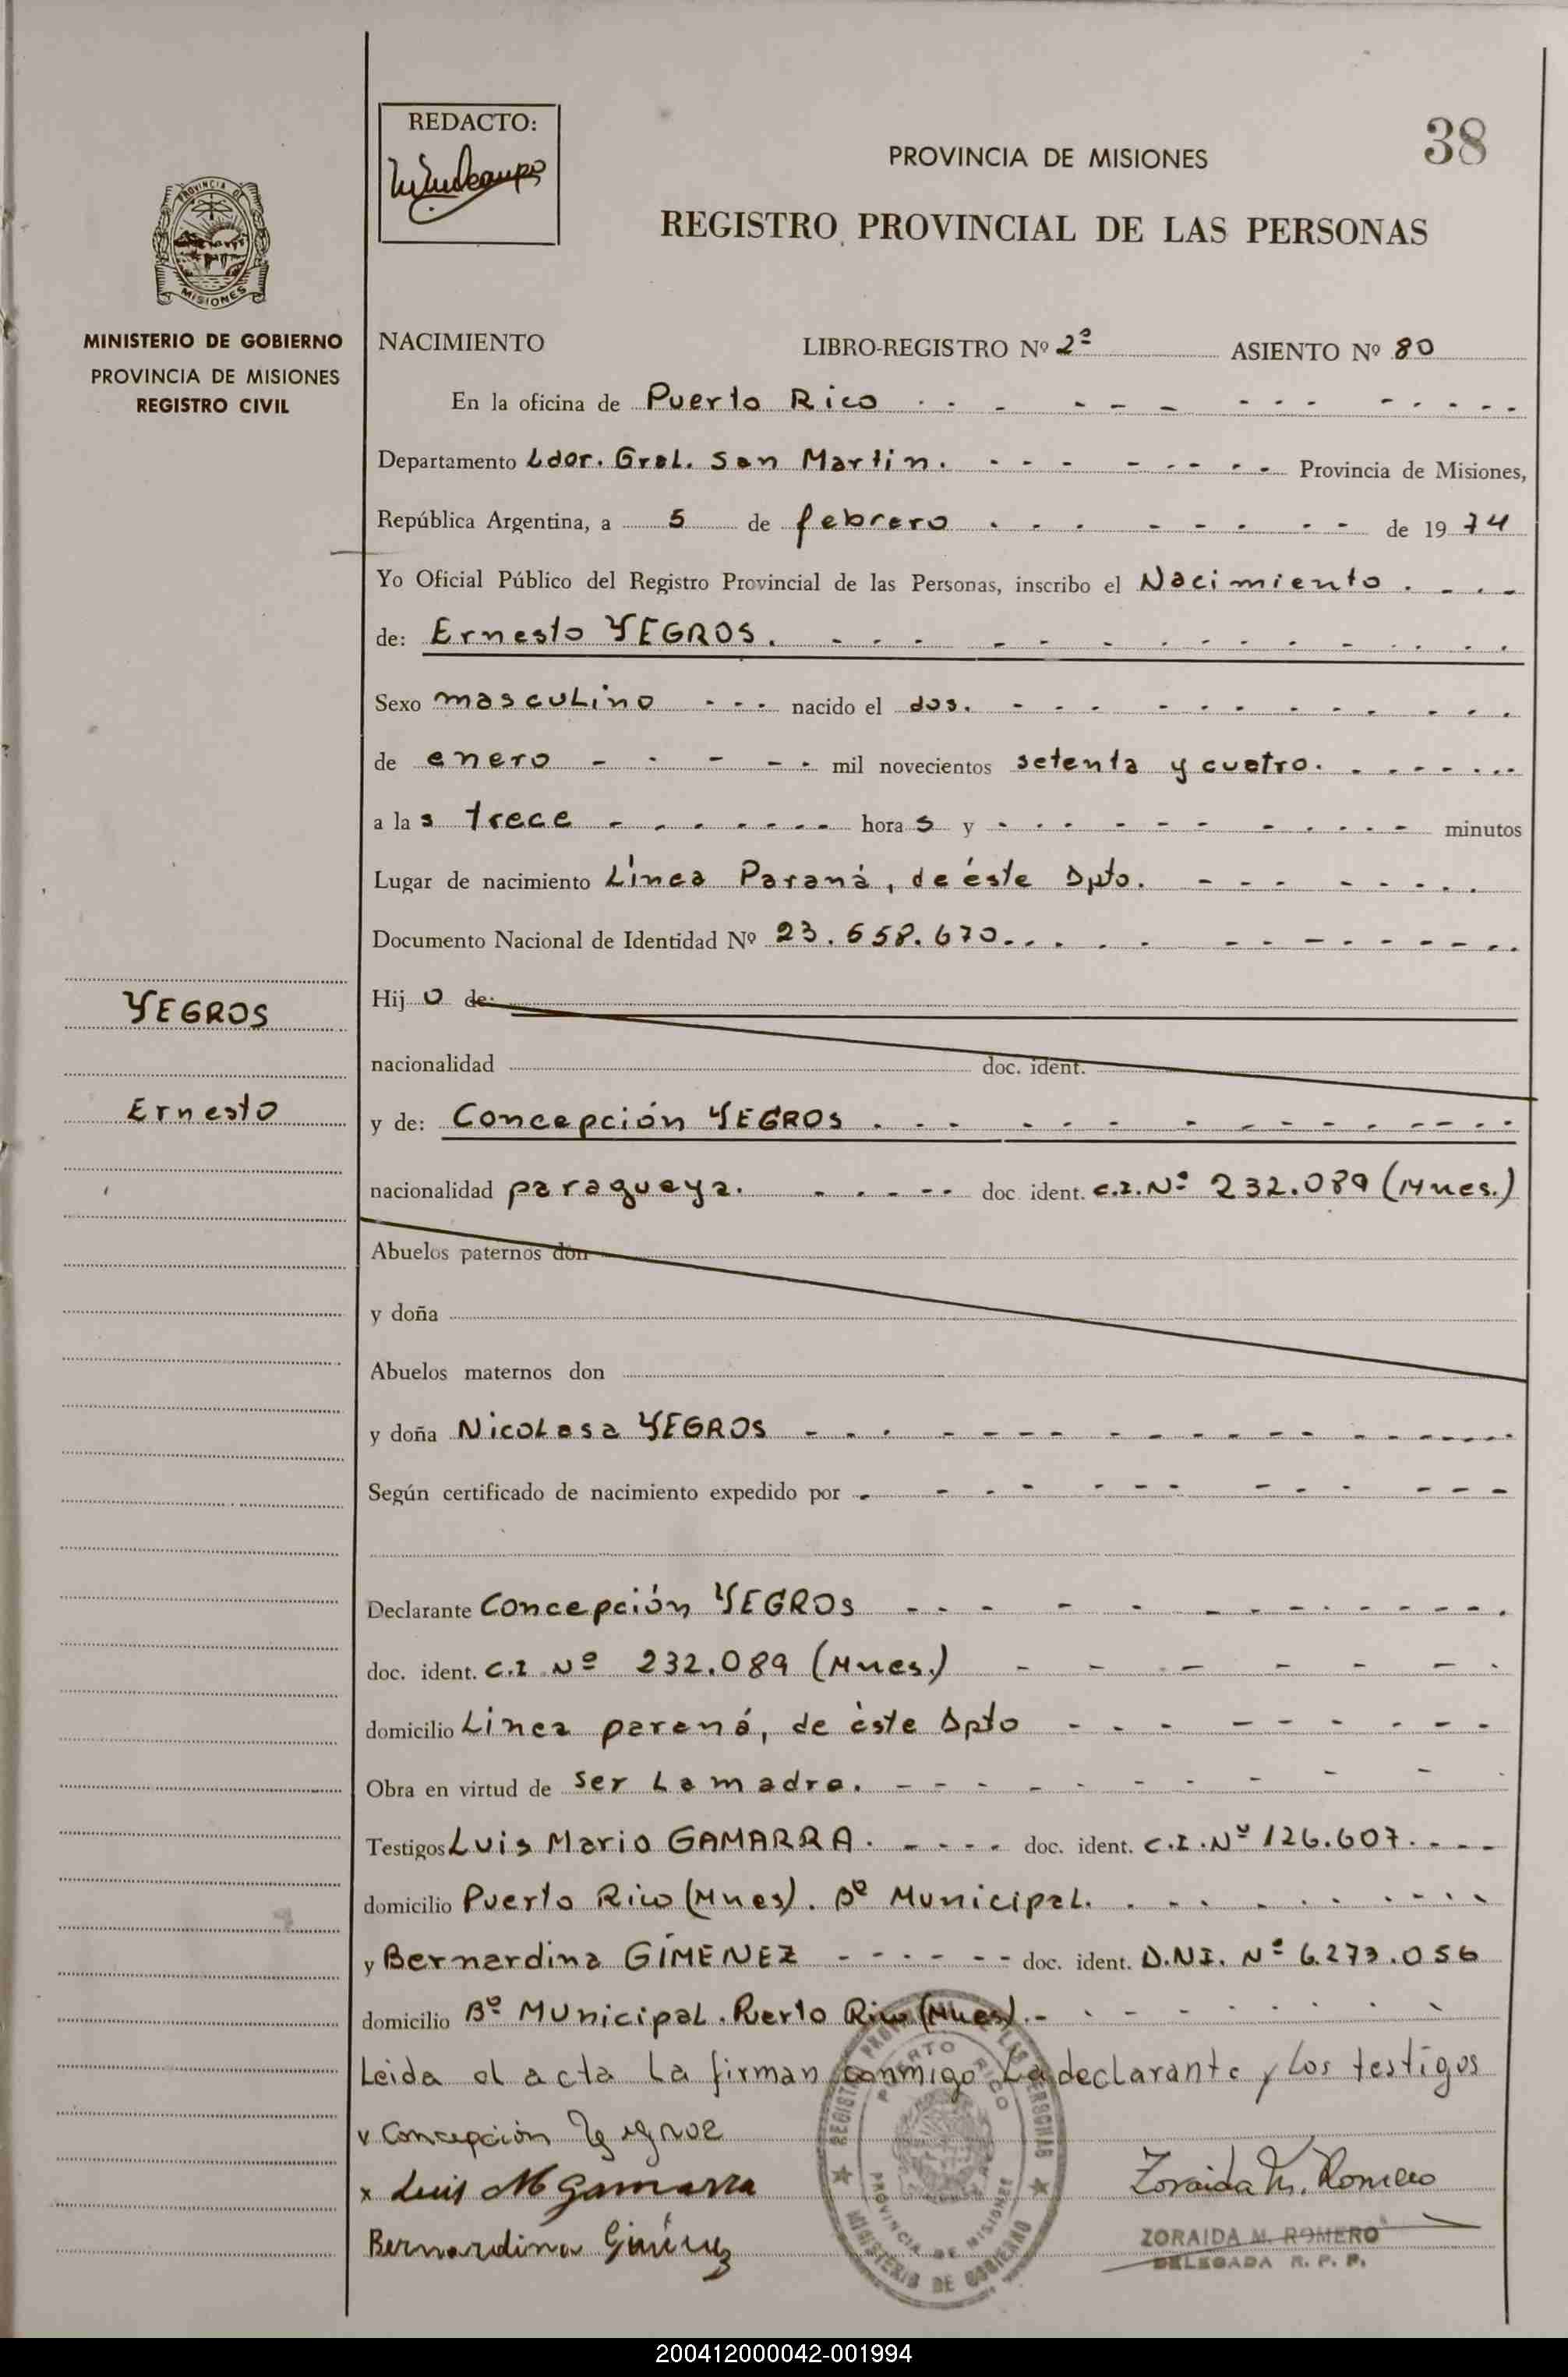 38
REDACTO:
PROVINCIA DE MISIONES
REGISTRO PROVINCIAL DE LAS PERSONAS
PROVINCIA DE
MISIONES
MINISTERIO DE GOBIERNO
PROVINCIA DE MISIONES
REGISTRO CIVIL
NACIMIENTO LIBRO-REGISTRO Nº 2º ASIENTO Nº 80
En la oficina de Puerto Rico
Departamento Ldor. Gral. San Martin. Provincia de Misiones,
República Argentina, a 5 de febrero de 1974
Yo Oficial Público del Registro Provincial de las Personas, inscribo el Nacimiento
de: Ernesto YEGROS.
Sexo masculino nacido el dos.
de enero mil novecientos setenta y cuatro.
a las trece horas y minutos
Lugar de nacimiento Línea Paraná, de éste Dpto.
Documento Nacional de Identidad Nº 23.658.670
YEGROS
Ernesto
Hijo de:
nacionalidad doc. ident.
y de: Concepción YEGROS
nacionalidad paraguaya. doc ident. C.I. Nº 232.089 (Mnes.)
Abuelos paternos don
y doña
Abuelos maternos don
y doña Nicolasa YEGROS
Según certificado de nacimiento expedido por
Declarante Concepción YEGROS
doc. ident. C.I Nº 232.089 (Mnes.)
domicilio Linea paraná, de éste Dpto
Obra en virtud de ser la madre.
Testigos Luis Mario GAMARRA. doc. ident. C.I. Nº 126.607.
domicilio Puerto Rico (Mnes). Bº Municipal.
y Bernardina GIMENEZ doc. ident. D.N.I. Nº 6.273.056
domicilio Bº Municipal. Puerto Rico (Mnes).
Leida el acta la firman conmigo la declarante y los testigos
Concepción
x Luis M Gamarra
Bernardina Giménez
Zoraida M. Romero
ZORAIDA M. ROMERO
DELEGADA R. P. P.
REGISTRO PROVINCIAL DE LAS PERSONAS
PUERTO RICO
PROVINCIA DE MISIONES
MINISTERIO DE GOBIERNO
200412000042-001994